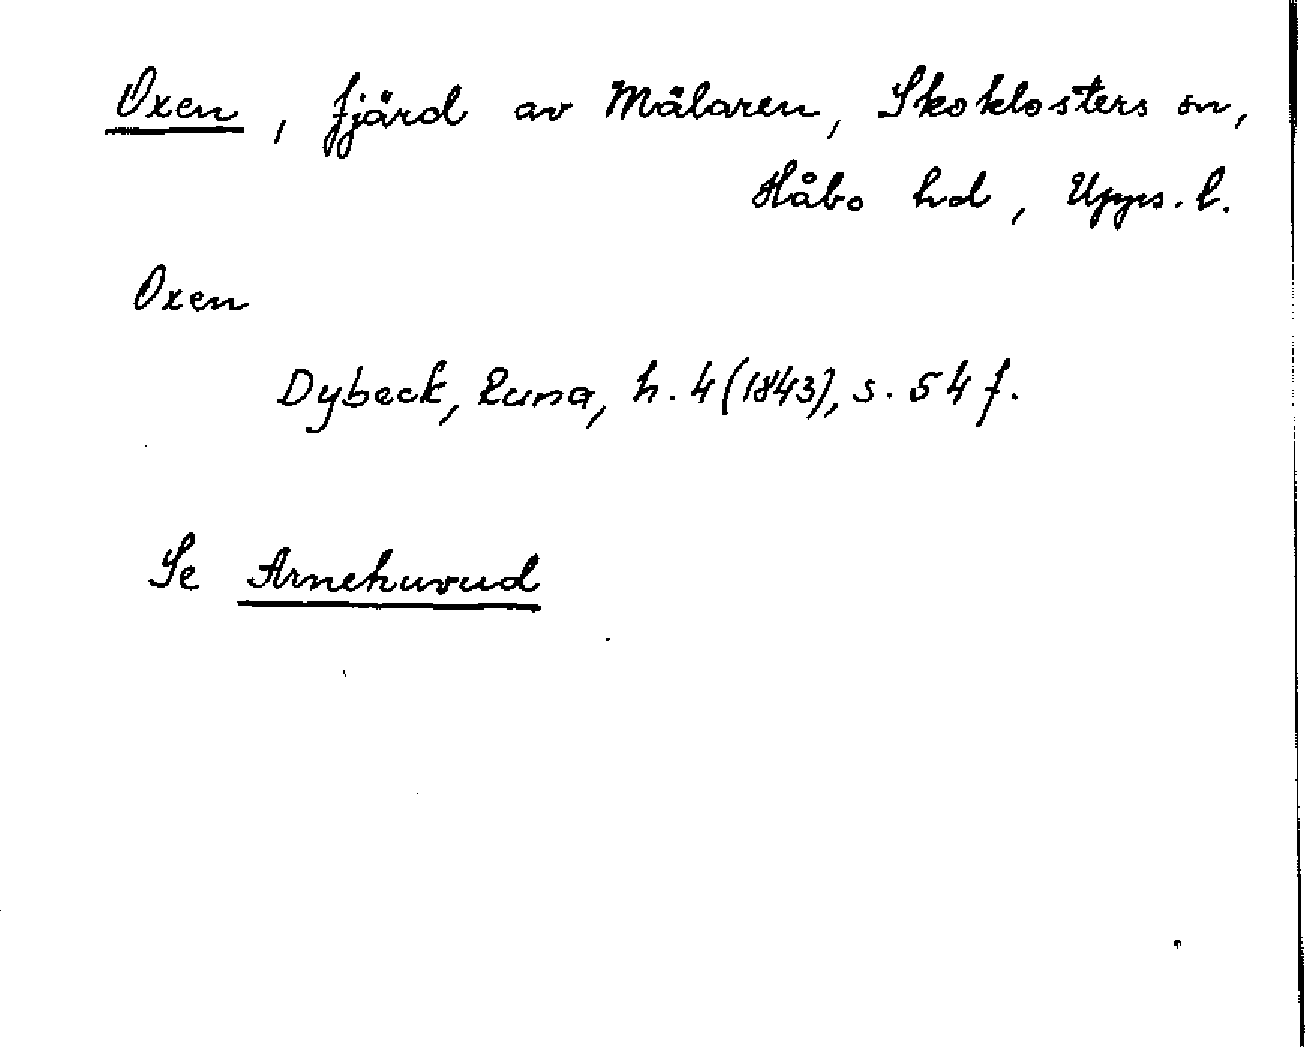 Oxen, fjärd av Mälaren, Skoklosters sn,
Håbo hd, Upps. l.
Oxen
Dybeck, Runa, h. 4 (1843), s. 54 f.
Se Arnehuvud